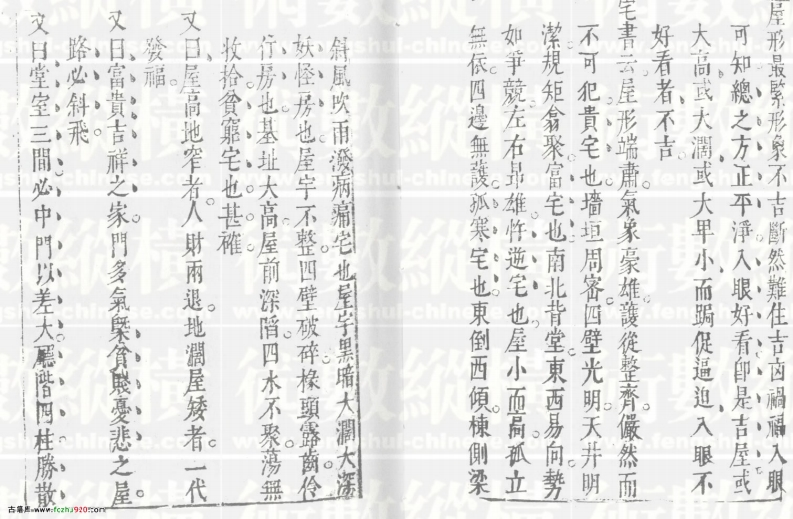 屋形最緊形象不吉斷然難住吉凶禍福入眼
可知總之方正平淨入眼好看卽是吉屋或
大高或大濶或大卑小而跼促逼迫入眼不
好看者不吉
宅書云屋形端肅氣象豪雄護從整齊儼然而
不可犯貴宅也墻垣周密四壁光明天井明
潔規矩翕聚富宅也南北背堂東西易向勢
如爭競左右昻雄忤逆宅也屋小而高孤立
無依四邊無護孤寒宅也東倒西傾棟側梁
斜風吹雨潑病痛宅也屋宇黑暗大濶大深
妖怪房也屋宇不整四壁破碎椽頭露齒伶
仃房也基址大高屋前深陷四水不聚蕩無
收拾貧窮宅也甚確
又曰屋高地窄者人財兩退地濶屋矮者一代
發福
又曰富貴吉祥之家門多氣槩貧賤憂悲之屋
路必斜飛
又曰堂室三間必中門以差大廳階四柱勝散
古易库 www.fczhj920s.com